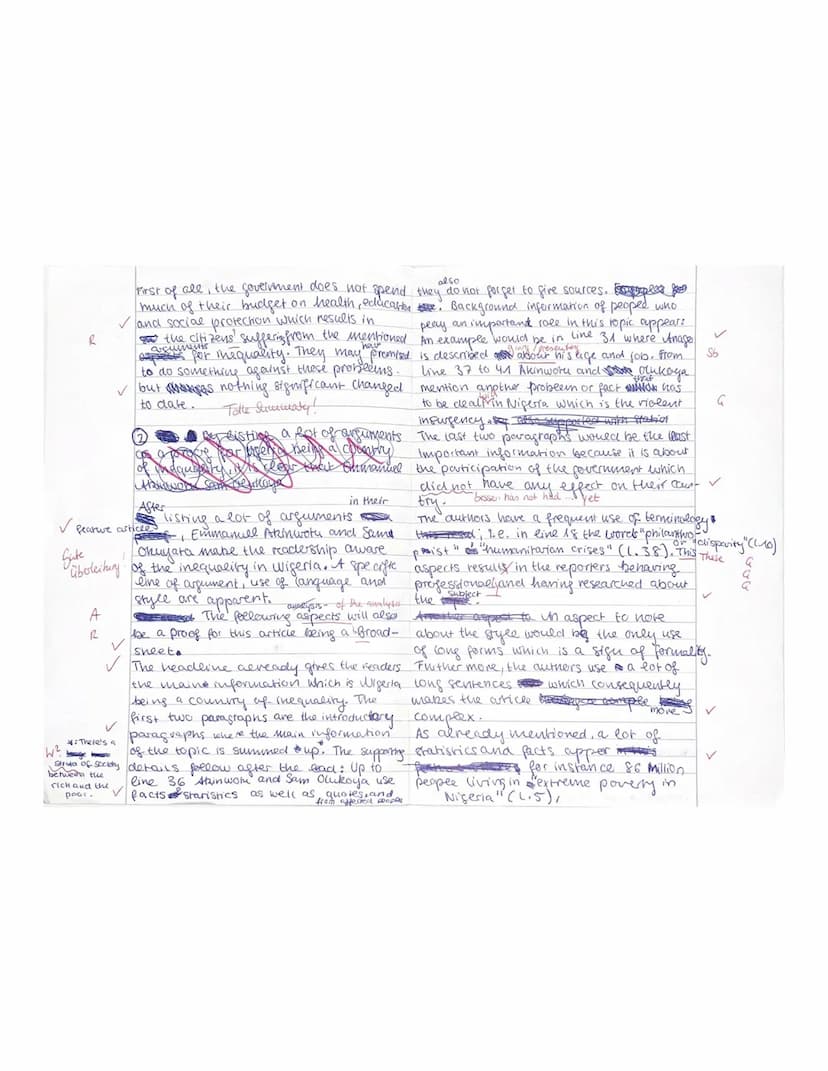 First of all, the government does not spend
much of their budget on health, education
and social protection which results in
the citizens' suffering from the mentioned
arguments
for inequality. They may have promised
to do something against these problems.
but nothing significant changed
to date.
Tolle Summary!
R
② By listing a lot of arguments
as a prove for Nigeria being a country
of inequality, it is clear that Emmanuel
Akinwotu Sam Olukoya
After in their
listing a lot of arguments
feature article, Emmanuel Akinwotu and Sam
Olukoya make the readership aware
of the inequality in Nigeria. A specific
line of argument, use of language and
style are apparent.
analysis- of the analysis
The following aspects will also
be a proof for this article being a broad-
sheet.
Gute
Überleitung!
A
R
The headline already gives the readers
the main information which is Nigeria
being a country of inequality. The
first two paragraphs are the introductory
paragraphs where the main information
of the topic is summed * up. The supporting
details follow after the lead: Up to
line 36 Akinwotu and Sam Olukoya use
facts statistics as well as quotes and
from affected people
*: There's a
W²
of society
between the
rich and the
poor.
also
they do not forget to give sources.
Background information of people who
play an important role in this topic appears
An example would be in line 31 where Anago
giving / presenting
is described about his age and job. From
Sb
line 37 to 41 Akinwotu and Olukoya
mention another problem or fact that has
to be dealt with in Nigeria which is the violent
G
insurgency.
The last two paragraphs would be the least
important information because it is about
the participation of the government which
did not have any effect on their coun-
try.
besser: has not had ... yet
The authors have a frequent use of terminology
i.e. in line 18 the word "philanthro-
pist" or "humanitarian crises" (l.38). This
or "disparity" (l.10)
These
aspects results in the reporters behaving
professionally and having researched about
the subject
G
G
G
An aspect to note
about the style would be the only use
of long forms which is a sign of formality.
Further more, the authors use a lot of
long sentences which consequently
makes the article more
complex.
As already mentioned, a lot of
statistics and facts apper
for instance 86 million
people living in "extreme poverty in
Nigeria" (l.5),